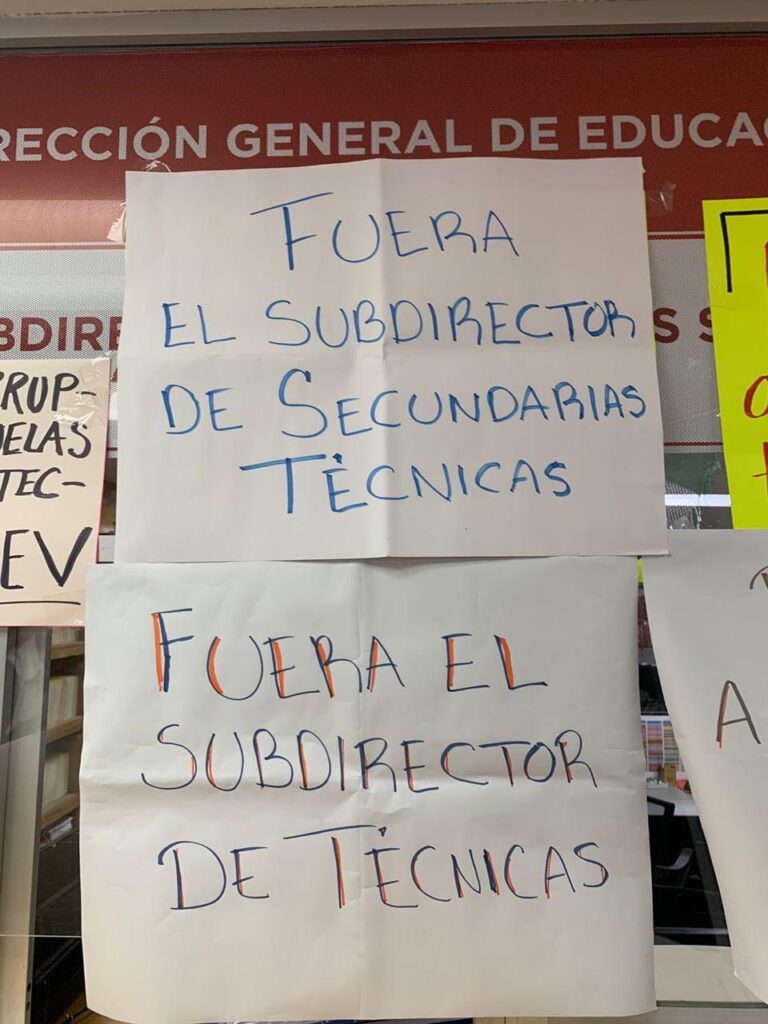 RECCIÓN GENERAL DE EDUCA
FUERA
EL SUBDIRECTOR
DE SECUNDARIAS
TÉCNICAS
BDIRE
S S
RUP-
ELAS
TEC-
EV
FUERA EL
SUBDIRECTOR
DE TÉCNICAS
A